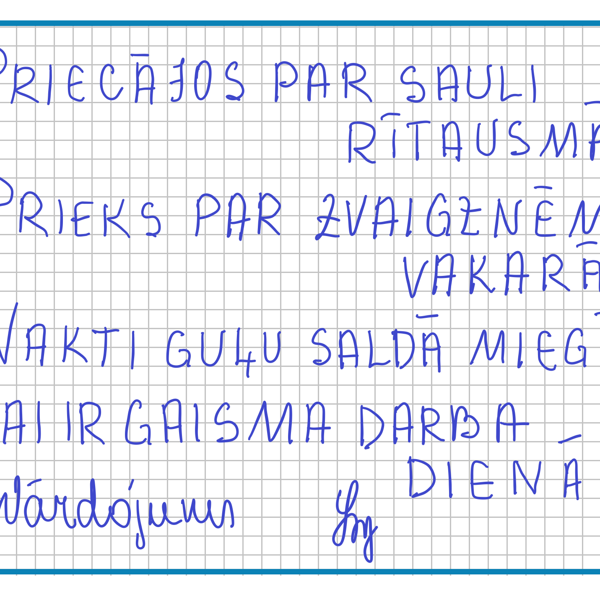 PRIECĀJOS PAR SAULI
RĪTAUSMĀ
PRIEKS PAR ZVAIGZNĒM
VAKARĀ
NAKTI GUĻU SALDĀ MIEG
AI IR GAISMA DARBA
DIENĀ
Vārdojums